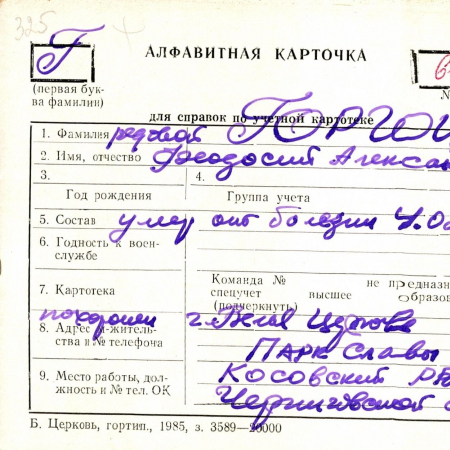 325
Г
АЛФАВИТНАЯ КАРТОЧКА
(первая бук-
ва фамилии)
№
для справок по учетной картотеке
1. Фамилия рядовой
2. Имя, отчество Феодосий Алексан
3.
4.
Год рождения
Группа учета
5. Состав умер от болезни 4.
6. Годность к воен-
службе
Команда № не предназн
7. Картотека
спецучет высшее образов
(подчеркнуть)
похоронен г. Белая Церковь
8. Адрес м-житель-
ства и № телефона
Парк Славы
9. Место работы, дол-
жность и № тел. ОК
Косовский
Черниговской
Б. Церковь, гортип., 1985, з. 3589—20000